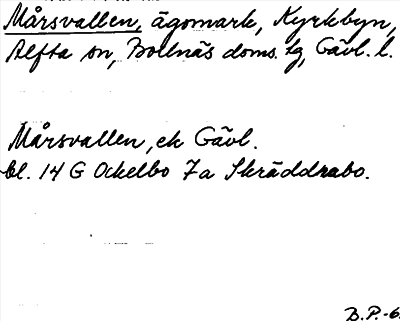 Mårsvallen, ägomark, Kyrkbyn,
Alfta sn, Bollnäs doms. tg, Gävl. l.
Mårsvallen, ek Gävl.
bl. 14 G Ockelbo 7a Skräddrabo.
B.P.-6